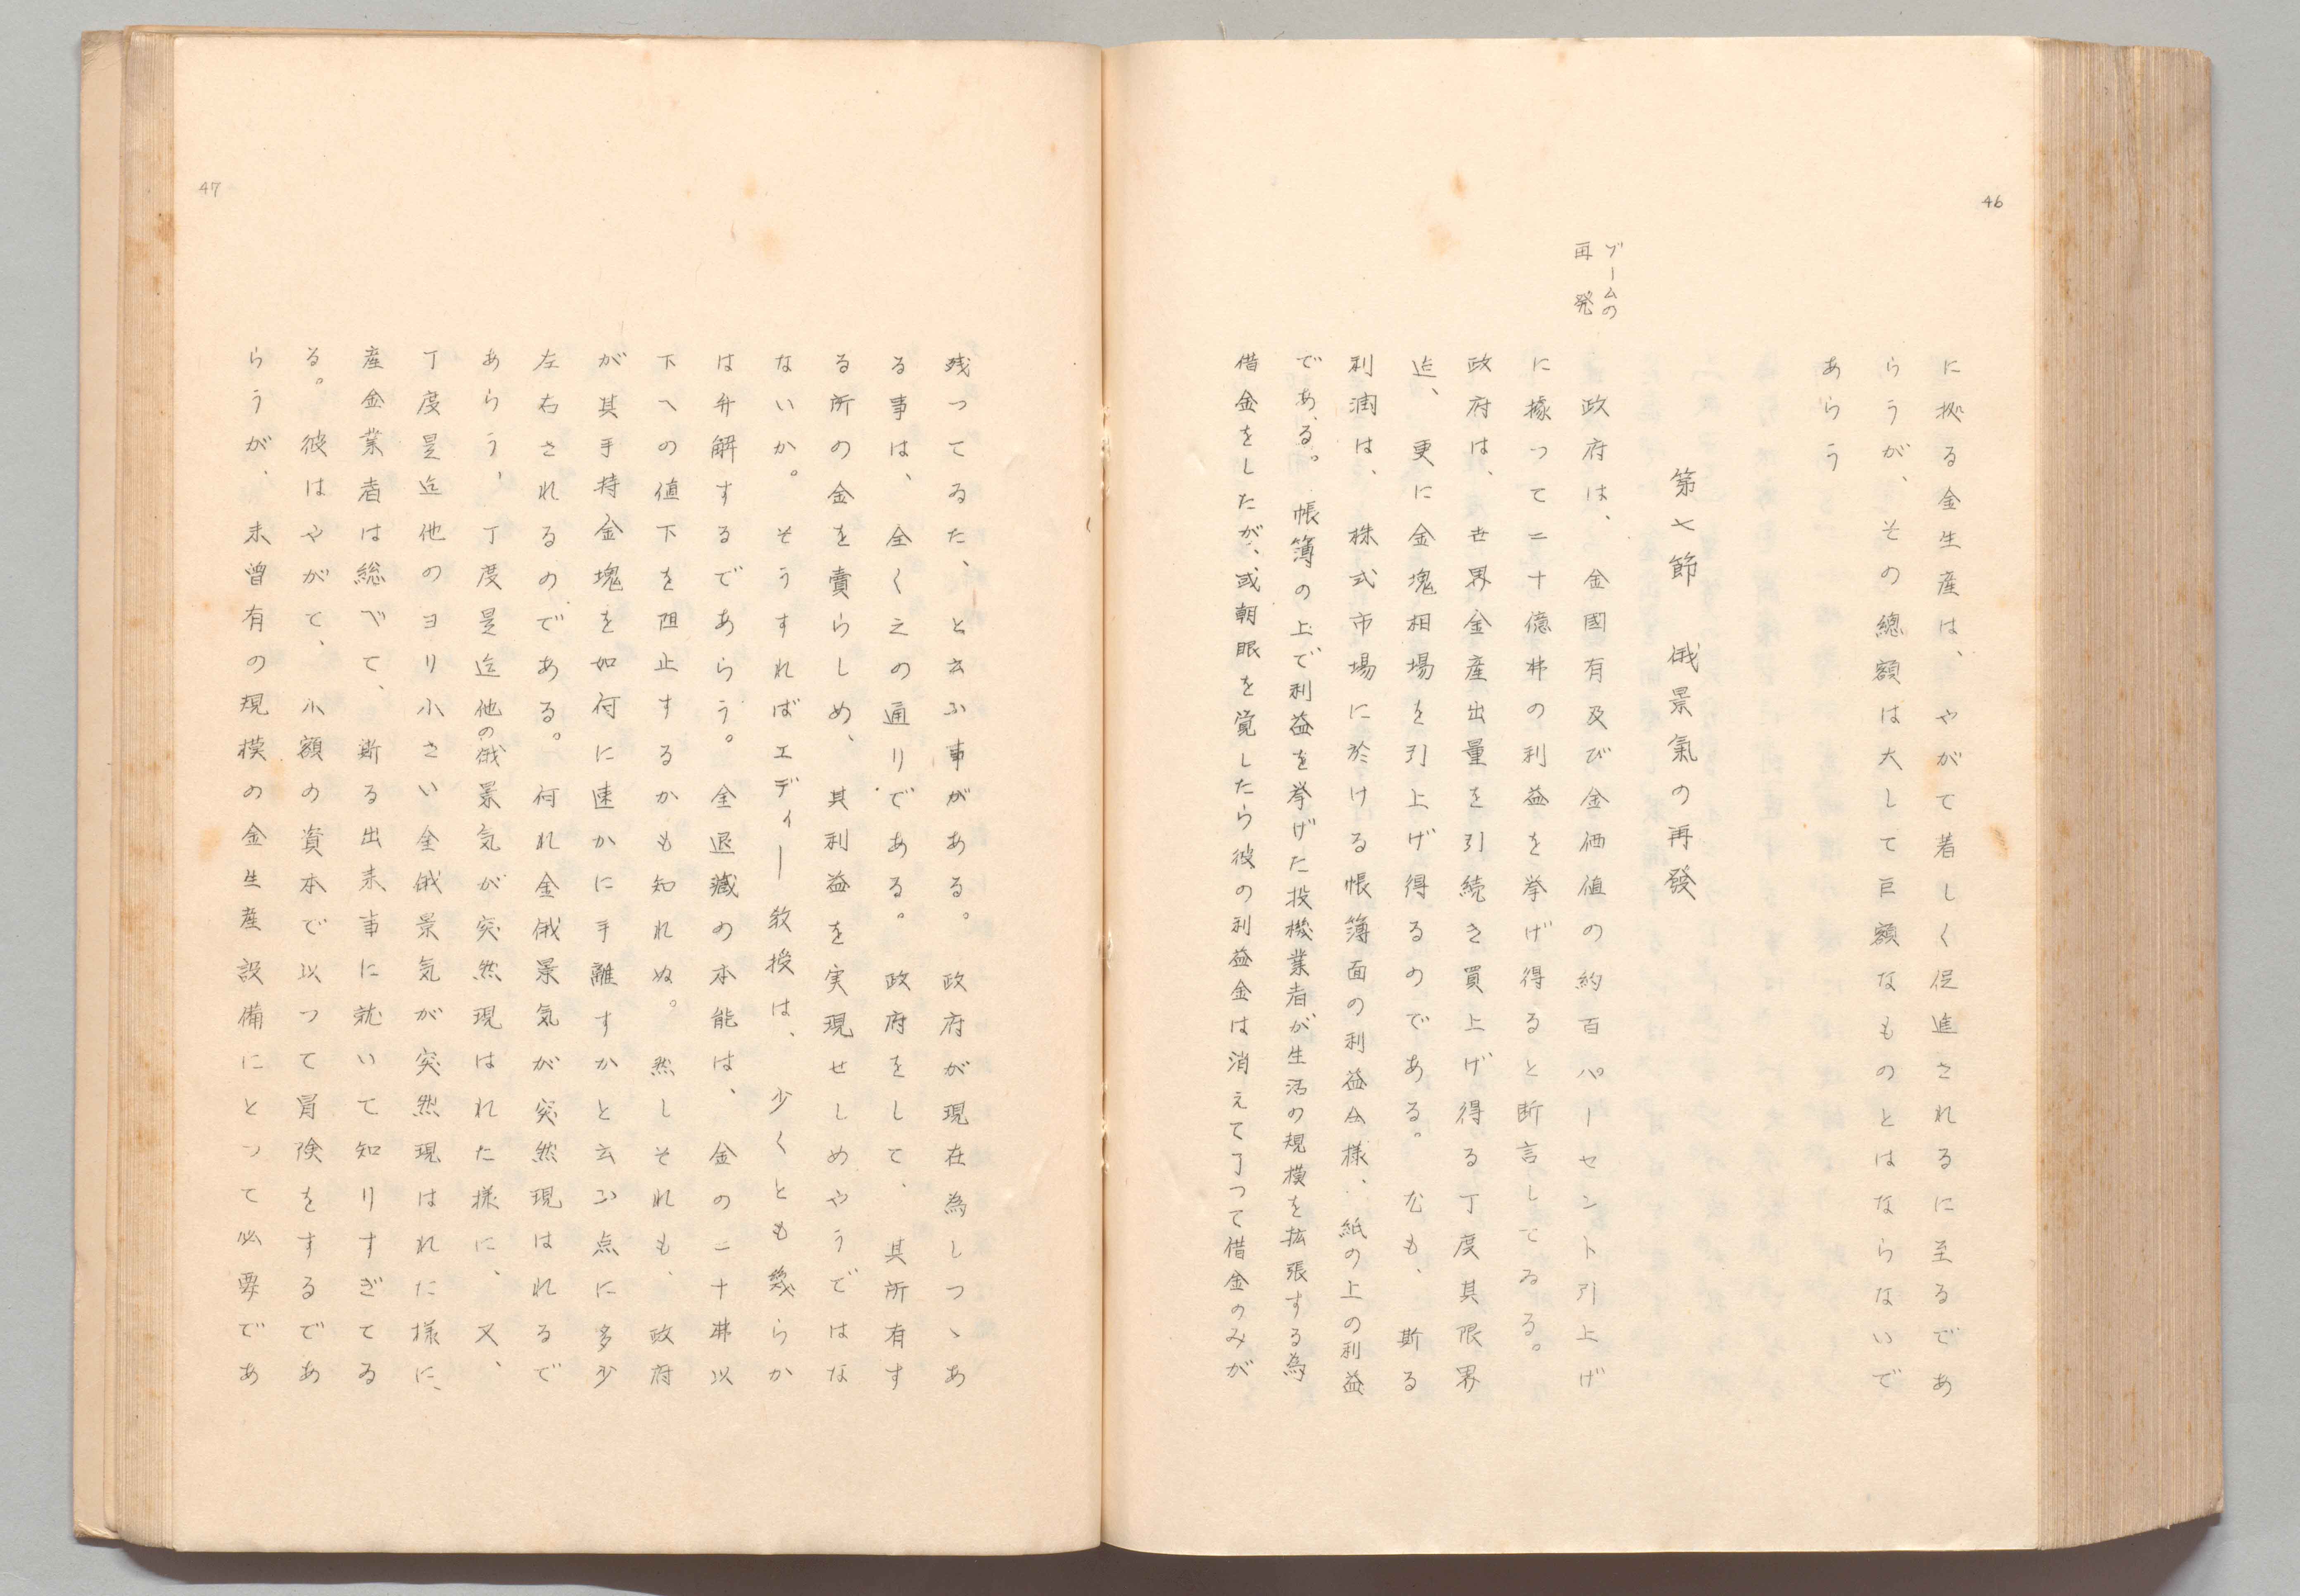 46
に拠る金生産は、やがて著しく促進されるに至るであ
らうが、その總額は大して巨額なものとはならないで
あらう
第七節　俄景氣の再發
ゾームの
再発
政府は、金國有及び金価値の約百パーセント引上げ
に據つて二十億弗の利益を挙げ得ると断言してゐる。
政府は、世界金産出量を引続き買上げ得る丁度其限界
迄、更に金塊相場を引上げ得るのである。尤も、斯る
利潤は、株式市場に於ける帳簿面の利益仝様、紙の上の利益
である。帳簿の上で利益を挙げた投機業者が生活の規模を拡張する為
借金をしたが、或朝眼を覚したら彼の利益金は消えて了つて借金のみが
47
残つてゐた、と云ふ事がある。政府が現在為しつゝあ
る事は、全く之の通りである。政府をして、其所有す
る所の金を賣らしめ、其利益を実現せしめやうではな
ないか。そうすればエディー教授は、少くとも幾らか
は弁解するであらう。金退藏の本能は、金の二十弗以
下への値下を阻止するかも知れぬ。然しそれも、政府
が其手持金塊を如何に速かに手離すかと云ふ点に多少
左右されるのである。何れ金俄景気が突然現はれるで
あらう、丁度是迄他の俄景気が突然現はれた様に、又、
丁度是迄他のヨリ小さい金俄景気が突然現はれた様に、
産金業者は総べて、斯る出来事に就いて知りすぎてゐ
る。彼はやがて、小額の資本で以つて冒険をするであ
らうが、未曾有の規模の金生産設備にとつて必要であ